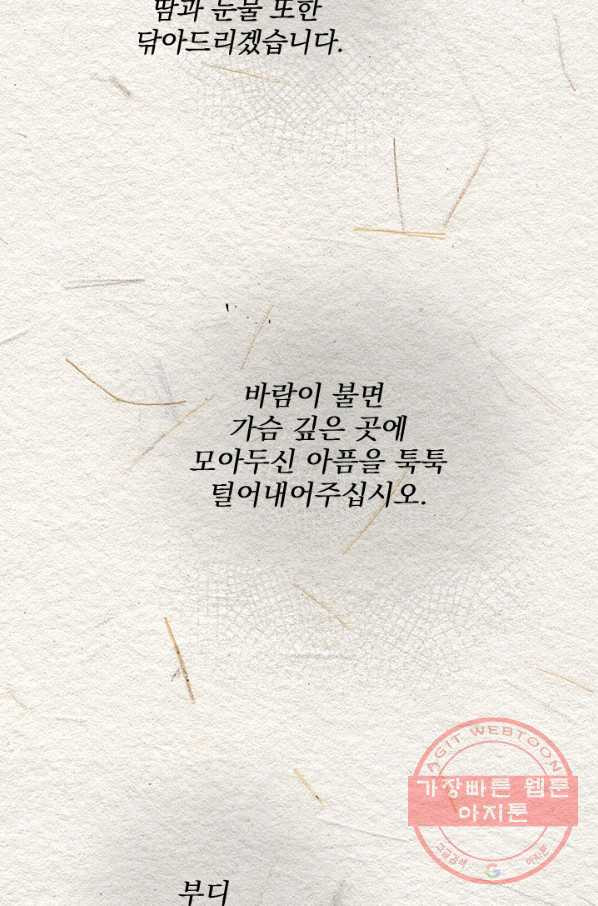 땀과 눈물 또한
닦아드리겠습니다.
바람이 불면
가슴 깊은 곳에
모아두신 아픔을 툭툭
털어내어주십시오.
AGIT WEBTOON
가장빠른 웹툰
아지툰
구글검색
G
아지툰
부디